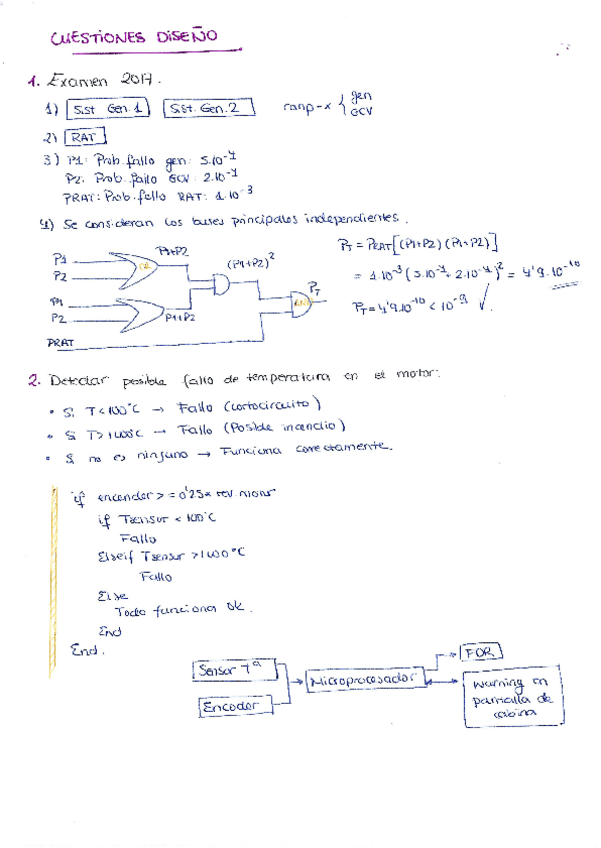 CUESTIONES DISEÑO
1. Examen 2017.
1) Sist. Gen. 1 Sist. Gen. 2 ranp-x { gen GCV
2) RAT
3) P1: Prob. fallo gen: 5.10⁻⁴
P2: Prob. fallo GCV: 2.10⁻⁴
PRAT: Prob. fallo RAT: 1.10⁻³
4) Se consideran los buses principales independientes.
P1 P1+P2
P2 OR (P1+P2)²
P1 PT
P2 P1+P2 AND
PRAT
PT = PRAT[(P1+P2)(P1+P2)]
= 1.10⁻³ (5.10⁻⁴ + 2.10⁻⁴)² = 4'9.10⁻¹⁰
PT = 4'9.10⁻¹⁰ < 10⁻⁹ ✓.
2. Detectar posible fallo de temperatura en el motor:
• Si T<100°C → Fallo (cortocircuito)
• Si T>1400°C → Fallo (Posible incendio)
• Si no es ninguno → Funciona correctamente.
if encender >= 0'25*
if Tsensor < 100°C
Fallo
Elseif Tsensor >1400°C
Fallo
Else
Todo funciona ok.
End
End.
Sensor Tª
Encoder
Microprocesador
FDR
Warning en
pantalla de
cabina